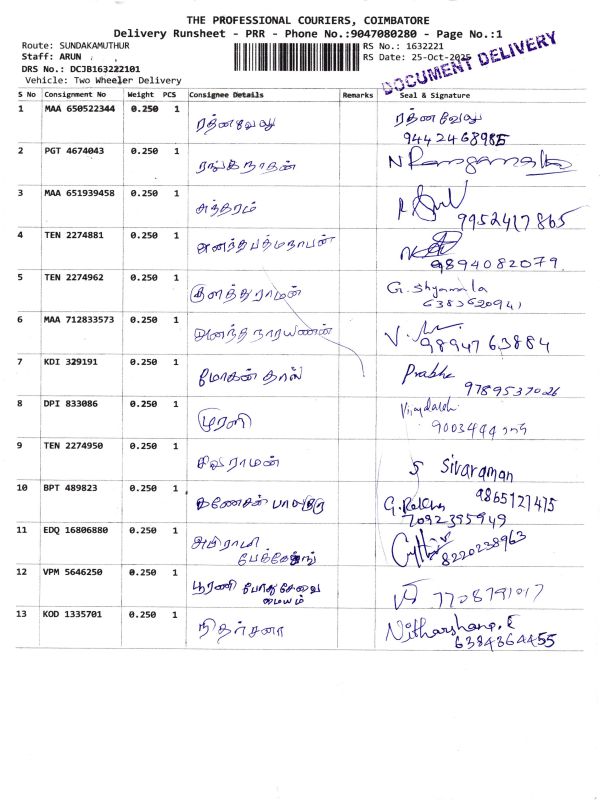 THE PROFESSIONAL COURIERS, COIMBATORE
Delivery Runsheet - PRR - Phone No.:9047080280 - Page No.:1
Route: SUNDAKAMUTHUR RS No.: 1632221
Staff: ARUN RS Date: 25-Oct-2025
DOCUMENT DELIVERY
DRS No.: DCJB163222101
Vehicle: Two Wheeler Delivery
S No Consignment No Weight PCS Consignee Details Remarks Seal & Signature
1 MAA 650522344 0.250 1 ரத்னவேலு ரத்னவேலு
9442468985
2 PGT 4674043 0.250 1 ரங்கநாதன்
3 MAA 651939458 0.250 1 சுந்தரம்
9952417865
4 TEN 2274881 0.250 1 அனந்தபத்மநாபன்
9894082079
5 TEN 2274962 0.250 1 G. Shyamala
6 MAA 712833573 0.250 1 அனந்தநாராயணன்
9894763884
7 KDI 329191 0.250 1 மோகன் தாஸ் Prabha
9789537026
8 DPI 833086 0.250 1 முரளி
9 TEN 2274950 0.250 1 சிவராமன் S Sivaraman
9865127475
10 BPT 489823 0.250 1 கணேசன்
7092395949
11 EDQ 16806880 0.250 1 அபிராமி
8220238963
12 VPM 5646250 0.250 1 பூரணி பொதுசேவை
மையம்
7708791017
13 KOD 1335701 0.250 1 நிதர்சனா Nitharshana.E
6384364455